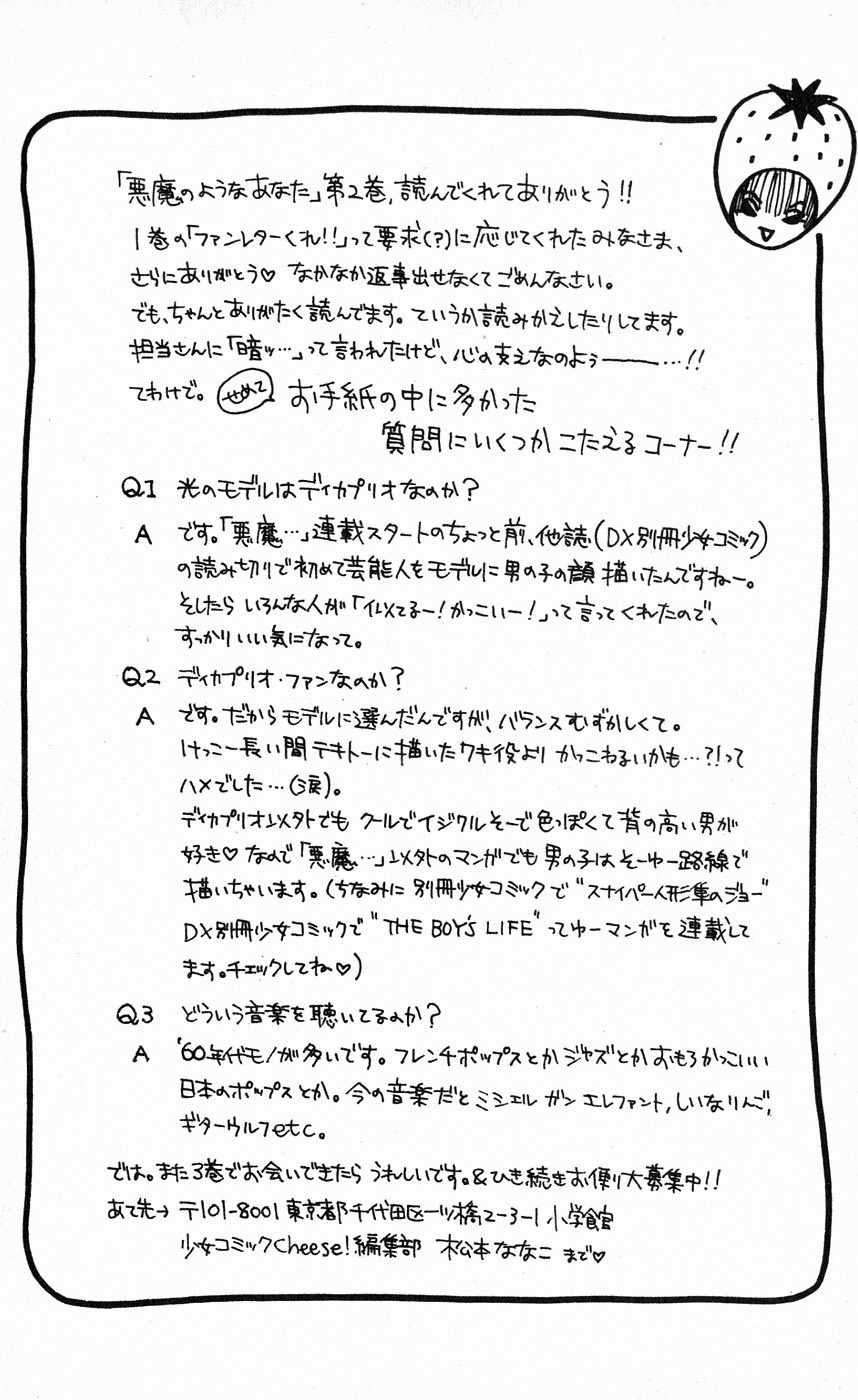 「悪魔のようなあなた」第2巻,読んでくれてありがとう!!
1巻の「ファンレターくれ!!」って要求(?)に応じてくれたみなさま、
さらにありがとう♡ なかなか返事出せなくてごめんなさい。
でも、ちゃんとありがたく読んでます。ていうか読みかえしたりしてます。
担当さんに「暗ッ…」って言われたけど、心の支えなのよぅ――…!!
てわけで。せめて お手紙の中に多かった
質問にいくつかこたえるコーナー!!
Q1 光のモデルはディカプリオなのか?
A です。「悪魔…」連載スタートのちょっと前、他誌(DX別冊少女コミック)
の読み切りで初めて芸能人をモデルに男の子の顔描いたんですねー。
そしたらいろんな人が「似てるー!かっこいー!」って言ってくれたので、
すっかりいい気になって。
Q2 ディカプリオ・ファンなのか?
A です。だからモデルに選んだんですが、バランスむずかしくて。
けっこー長い間テキトーに描いたワキ役よりかっこわるいかも…?!って
ハメでした…(涙)。
ディカプリオ以外でもクールでイジワルそーで色っぽくて背の高い男が
好き♡ なので「悪魔…」以外のマンガでも男の子はそーゆー路線で
描いちゃいます。(ちなみに別冊少女コミックで"スナイパー人形隼のジョー"
DX別冊少女コミックで"THE BOY'S LIFE"ってゆーマンガを連載して
ます。チェックしてね♡)
Q3 どういう音楽を聴いてるのか?
A '60年代モノが多いです。フレンチポップスとかジャズとかおもろかっこいい
日本のポップスとか。今の音楽だとミシェルガンエレファント,しいなりんご,
ギターウルフetc。
では。また3巻でお会いできたらうれしいです。&ひき続きお便り大募集中!!
あて先→〒101-8001東京都千代田区一ツ橋2-3-1小学館
少女コミックCheese!編集部 松本ななこまで♡